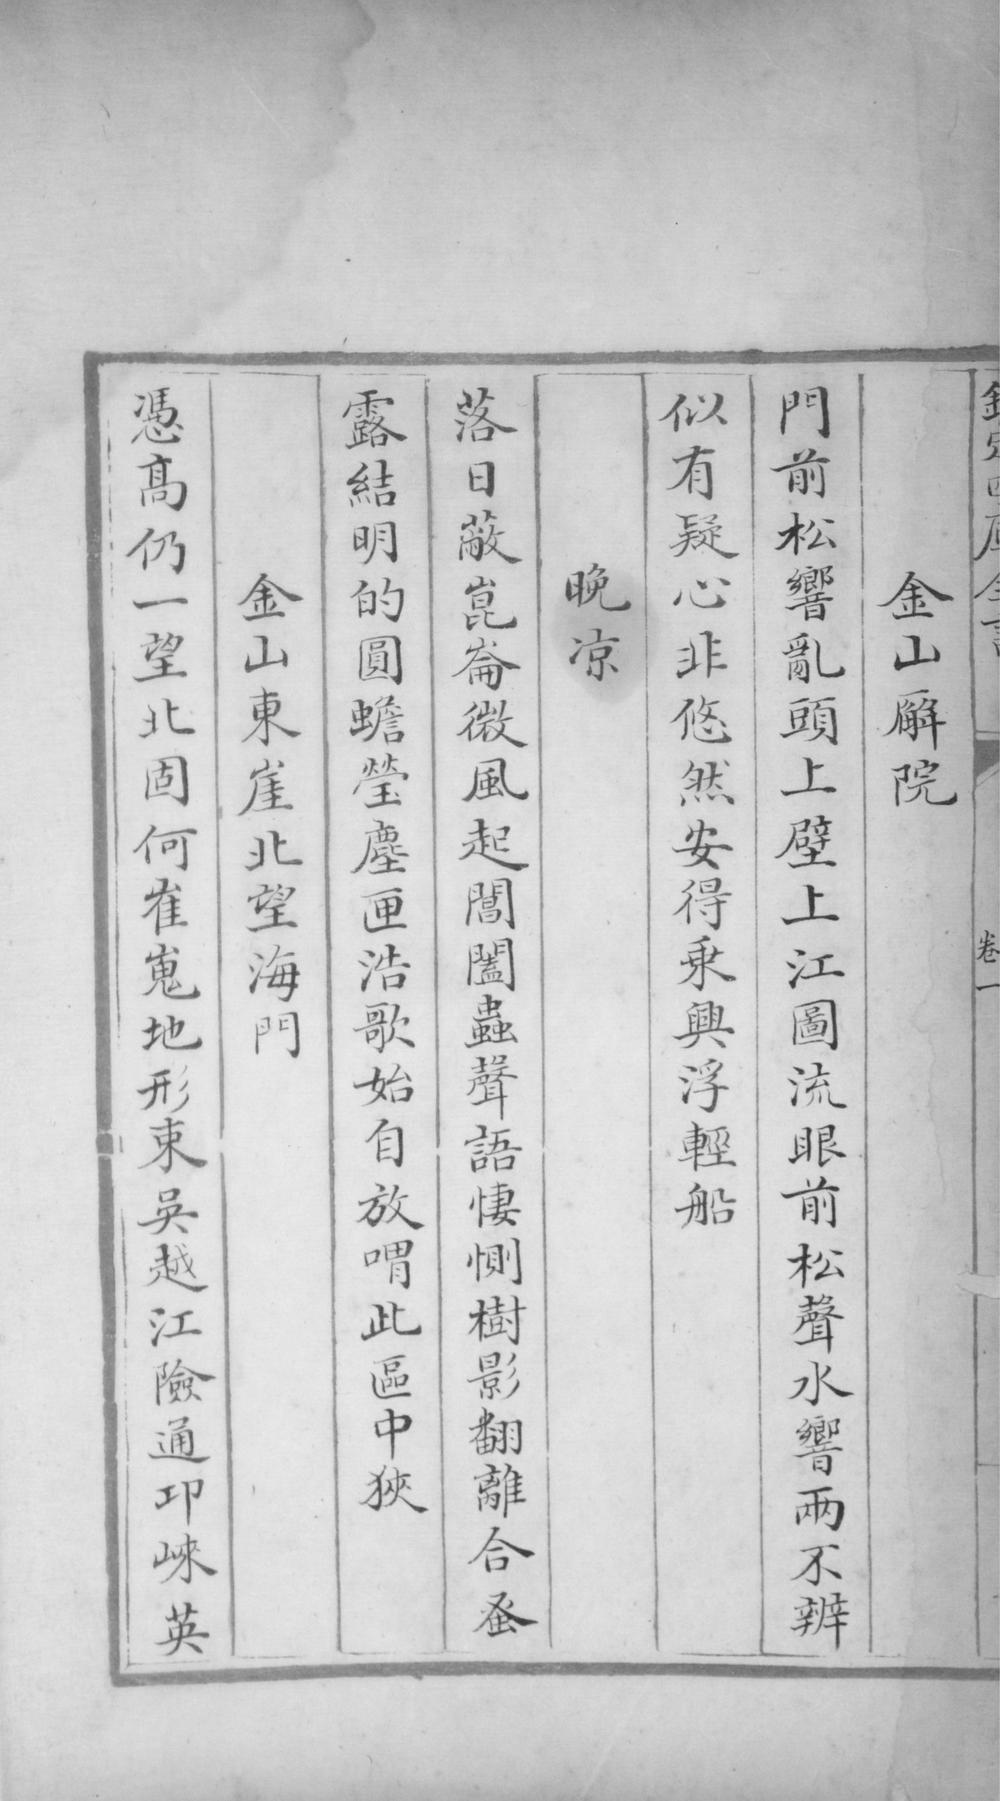 欽定四庫全書 卷一
金山廨院
門前松響亂頭上壁上江圖流眼前松聲水響兩不辨
似有疑心非悠然安得乘興浮輕船
晚凉
落日蔽崑崙微風起閶闔蟲聲語悽惻樹影翻離合蚤
露結明的圓蟾瑩塵匣浩歌始自放喟此區中狹
金山東崖北望海門
憑髙仍一望北固何崔嵬地形東吳越江險通邛崍英